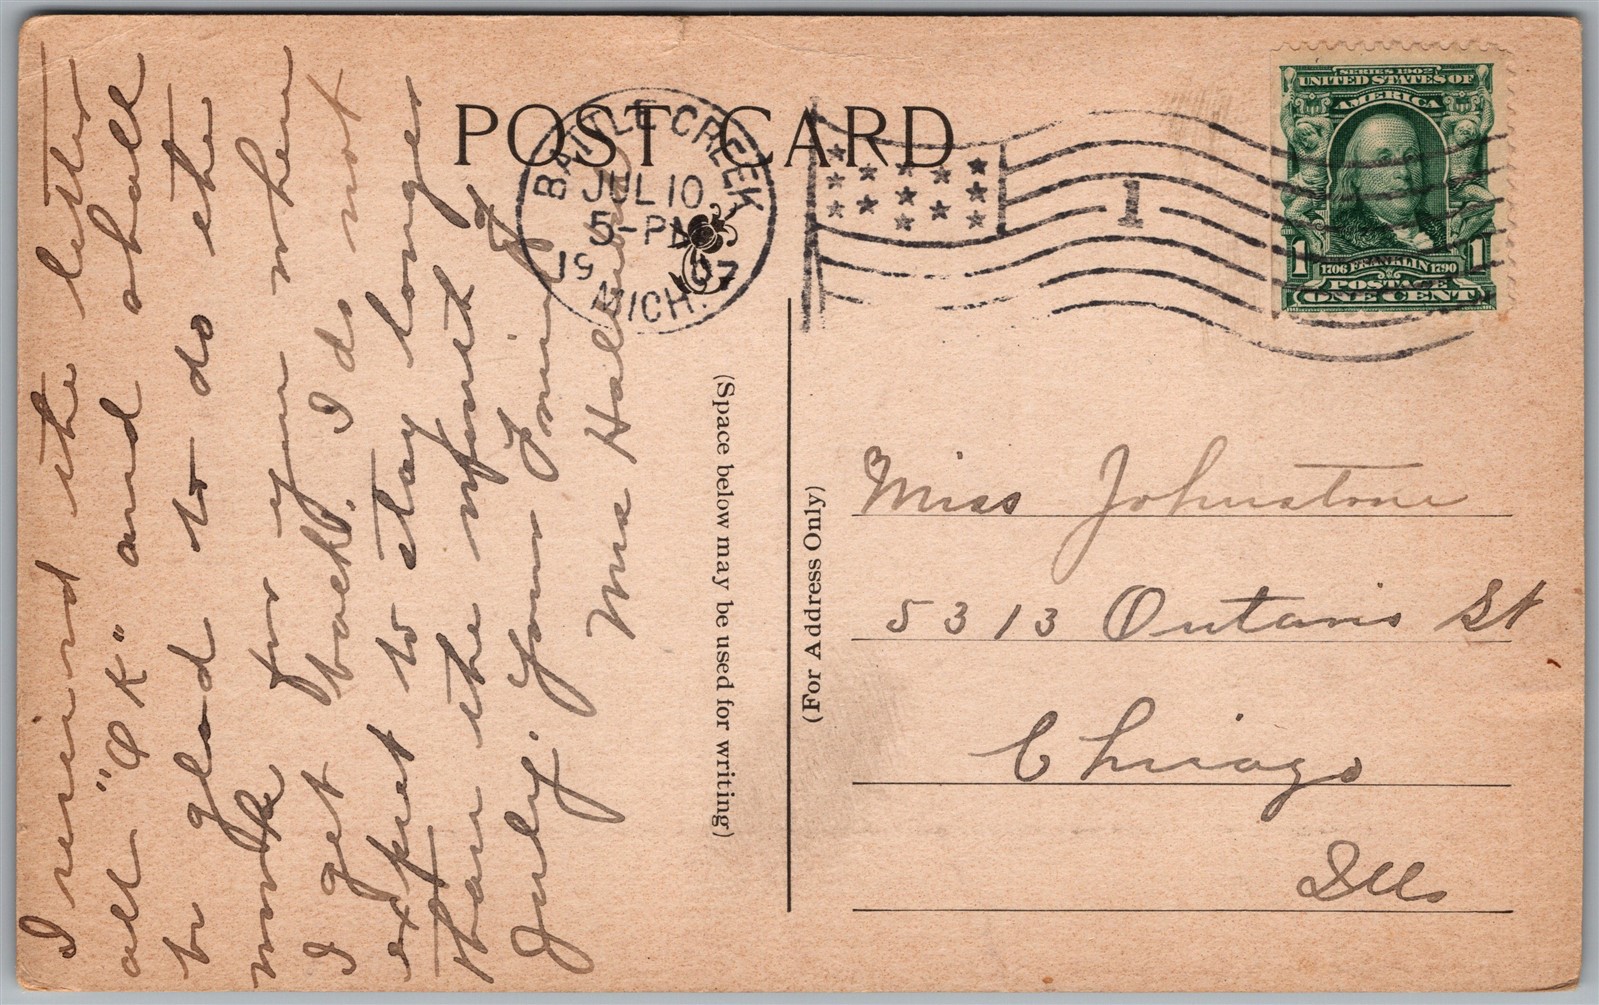 I received the letter
all "OK" and shall
be glad to do the
work for you when
I get back. I do not
expect to stay longer
than the most of
July. Yours Truly
Mrs
POST CARD
BATTLE CREEK
JUL 10
5-PM
1907
MICH.
1
SERIES 1902
UNITED STATES OF
AMERICA
1 1706 FRANKLIN 1790 1
POSTAGE
ONE CENT
(Space below may be used for writing)
(For Address Only)
Miss Johnstone
5313 Ontario St
Chicago
Ills